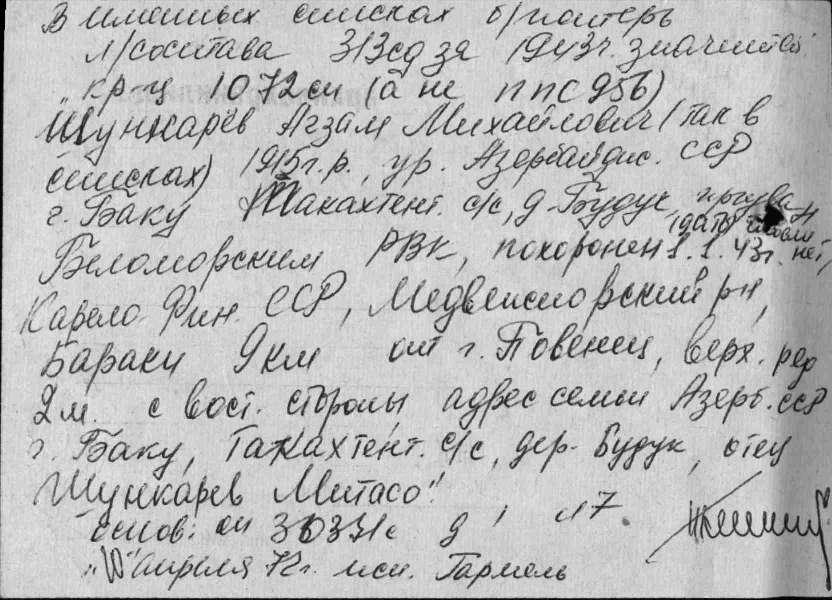 В именных списках б/потерь
л/состава 313 сд за 1943 г. значится:
„кр-ц 1072 сп (а не ппс 956)
Шункарёв Агзам Михайлович (так в
списках) 1915 г.р., ур. Азербайджс. ССР
г. Баку Такахтент. с/с, д. Будук, призван
Беломорским РВК, похоронен 1.1.43 г. нет,
Карело-Фин. ССР, Медвежьегорский р-н,
бараки 9 км от г. Повенец, верх. ряд
2 м. с вост. стороны, адрес семьи Азерб. ССР
г. Баку, Такахтент. с/с, дер. Будук, отец
Шункарев Митасо"
Основ: оп д л 7
„10" апреля 72 г. исп.